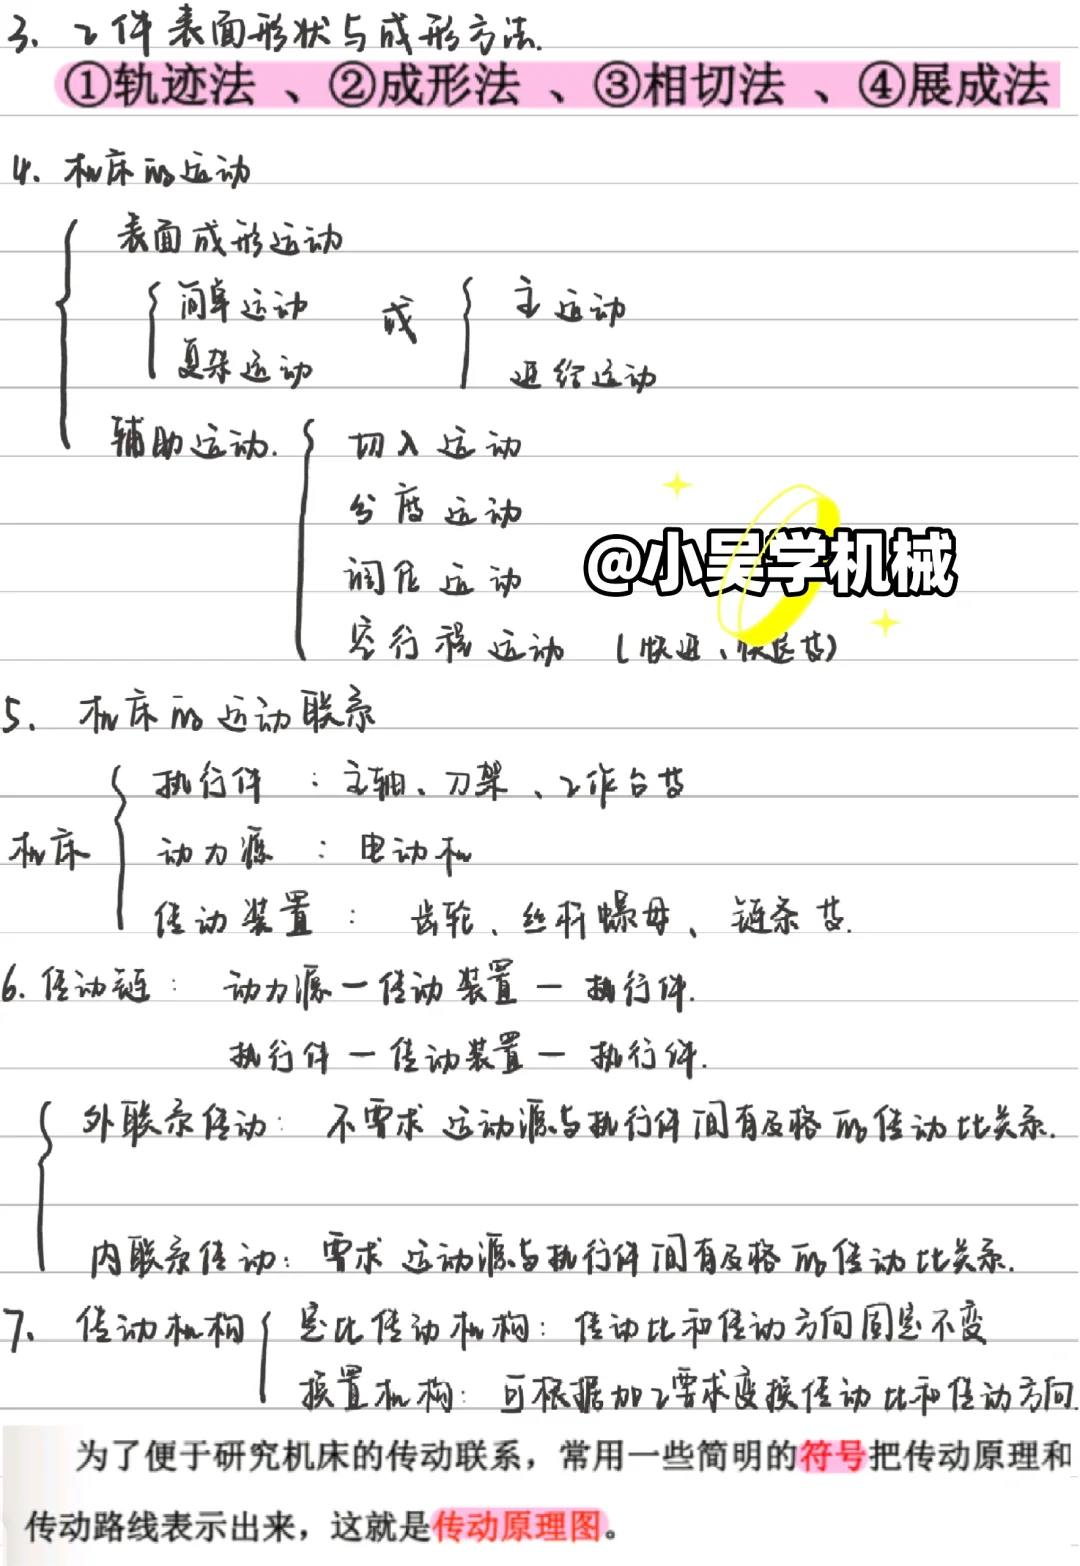 3、工件表面形状与成形方法.
①轨迹法 、②成形法 、③相切法 、④展成法
4. 机床的运动
表面成形运动
简单运动 或 主运动
复杂运动 进给运动
辅助运动. 切入运动
分度运动
@小吴学机械
调位运动
空行程运动 (快进、快退等)
5. 机床的运动联系
执行件 : 主轴、刀架、工作台等
机床 动力源 : 电动机
传动装置 : 齿轮、丝杆螺母、链条等.
6. 传动链: 动力源—传动装置—执行件.
执行件—传动装置—执行件.
外联系传动: 不要求运动源与执行件间有严格的传动比关系.
内联系传动: 要求运动源与执行件间有严格的传动比关系.
7. 传动机构 定比传动机构: 传动比和传动方向固定不变
换置机构: 可根据加工要求变换传动比和传动方向
为了便于研究机床的传动联系，常用一些简明的符号把传动原理和
传动路线表示出来，这就是传动原理图。